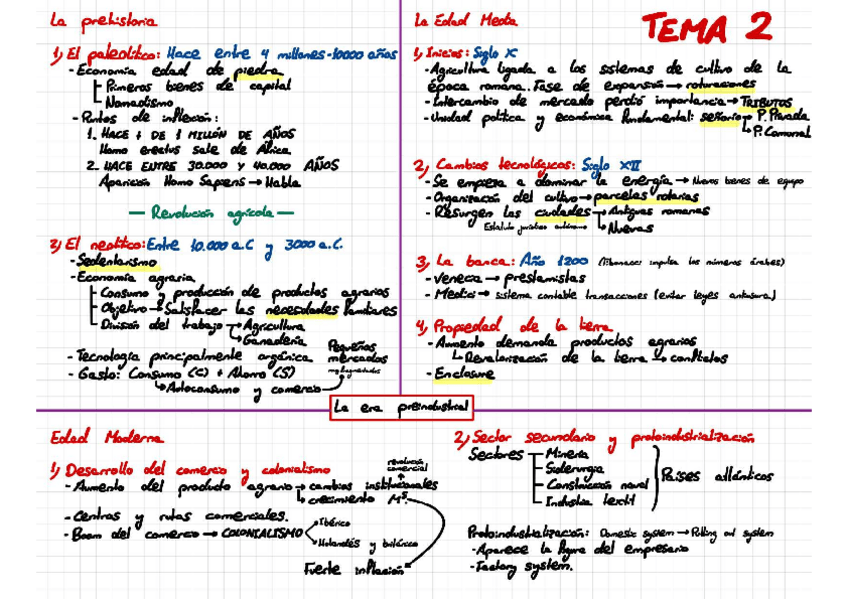 La prehistoria
1) El paleolítico: Hace entre 4 millones-10000 años
- Economía edad de piedra
Primeros bienes de capital
Nomadismo
- Puntos de inflexión:
1. HACE + DE 1 MILLÓN DE AÑOS
Homo erectus sale de África
2. HACE ENTRE 30.000 y 40.000 AÑOS
Aparición Homo Sapiens → Habla
— Revolución agrícola —
2) El neolítico: Entre 10.000 a.C y 3000 a.C.
- Sedentarismo
- Economía agraria
Consumo y producción de productos agrarios
Objetivo → Satisfacer las necesidades familiares
División del trabajo → Agricultura
→ Ganadería
- Tecnología principalmente orgánica
- Gasto: Consumo (C) + Ahorro (S)
→ Autoconsumo y comercio
Pequeños
mercados
La Edad Media
TEMA 2
1) Inicios: Siglo X
- Agricultura ligada a los sistemas de cultivo de la
época romana. Fase de expansión → roturaciones
- Intercambio de mercado perdió importancia → TRIBUTOS
- Unidad política y económica fundamental: señorío → P. Privada
→ P. Comunal
2) Cambios tecnológicos: Siglo XII
- Se empieza a dominar la energía → Nuevos bienes de equipo
- Organización del cultivo → parcelas rotarias
- Resurgen las ciudades → Antiguas romanas
Estatuto jurídico autónomo → Nuevas
3) La banca: Año 1200 (Fibonacci impulsa los números árabes)
- Venecia → prestamistas
- Medici → sistema contable transacciones (evitar leyes antiusura)
4) Propiedad de la tierra
- Aumento demanda productos agrarios
→ Revalorización de la tierra → conflictos
- Enclosure
La era preindustrial
Edad Moderna
1) Desarrollo del comercio y colonialismo
- Aumento del producto agrario → cambios institucionales
→ crecimiento Mˢ
revolución
comercial
- Centros y rutas comerciales.
- Boom del comercio → COLONIALISMO
Ibérico
Holandés y británico
Fuerte inflación
2) Sector secundario y protoindustrialización
Sectores
Minería
Siderurgia
Construcción naval
Industria textil
Países atlánticos
Protoindustrialización: Domestic system → Putting out system
- Aparece la figura del empresario
- Factory system.